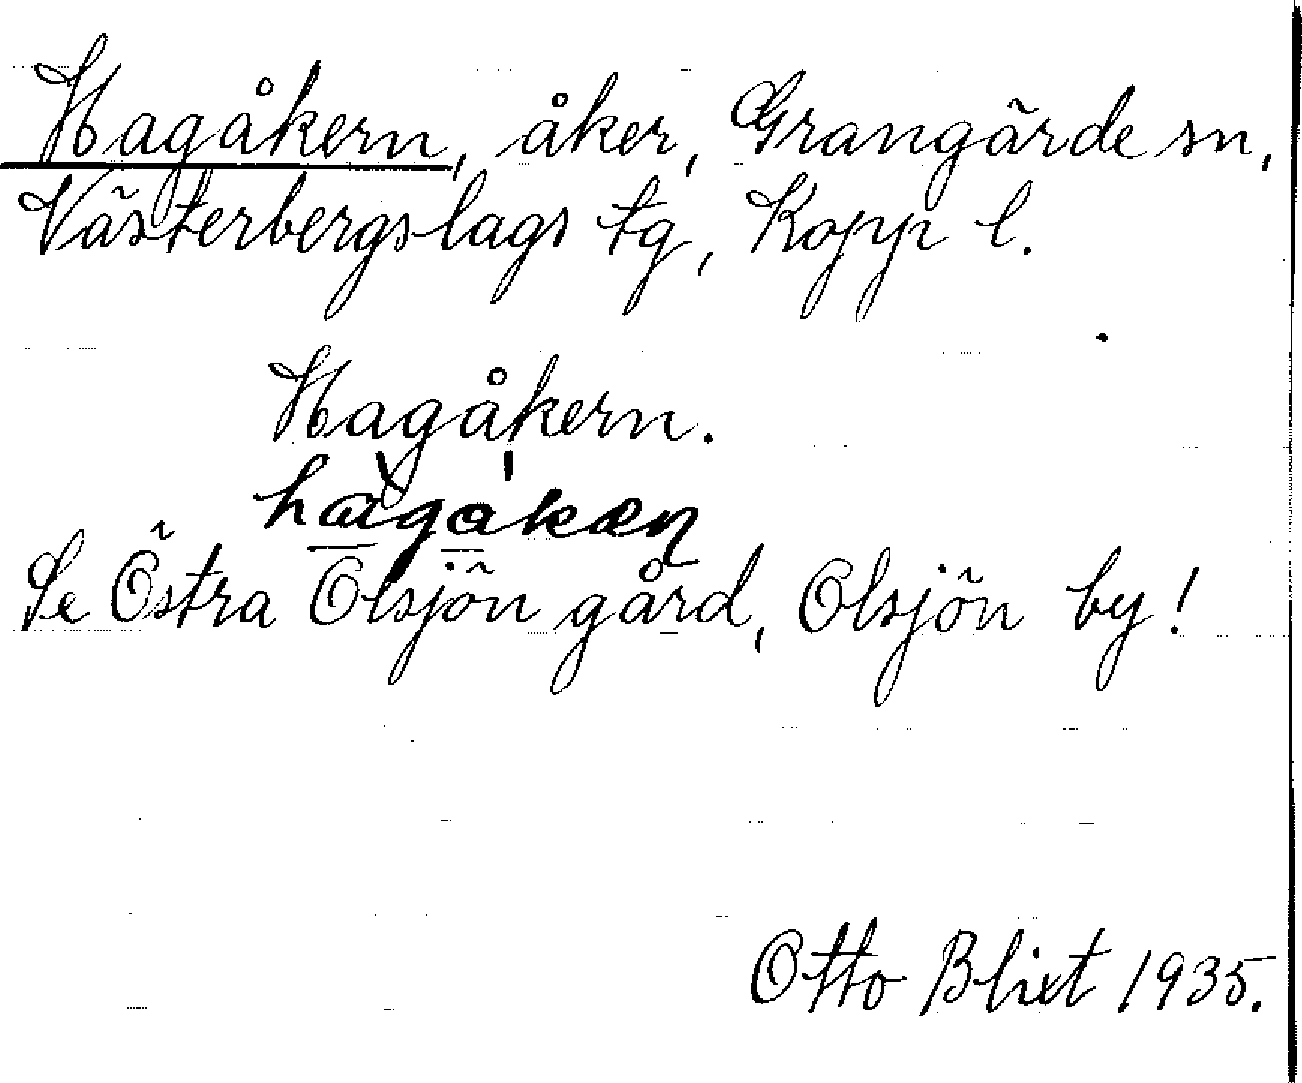 Hagåkern, åker, Grangärde sn,
Västerbergslags tg, Kopp l.
Hagåkern.
hàgåkæɳ
Se Östra Olsjön gård, Olsjön by!
Otto Blixt 1935.